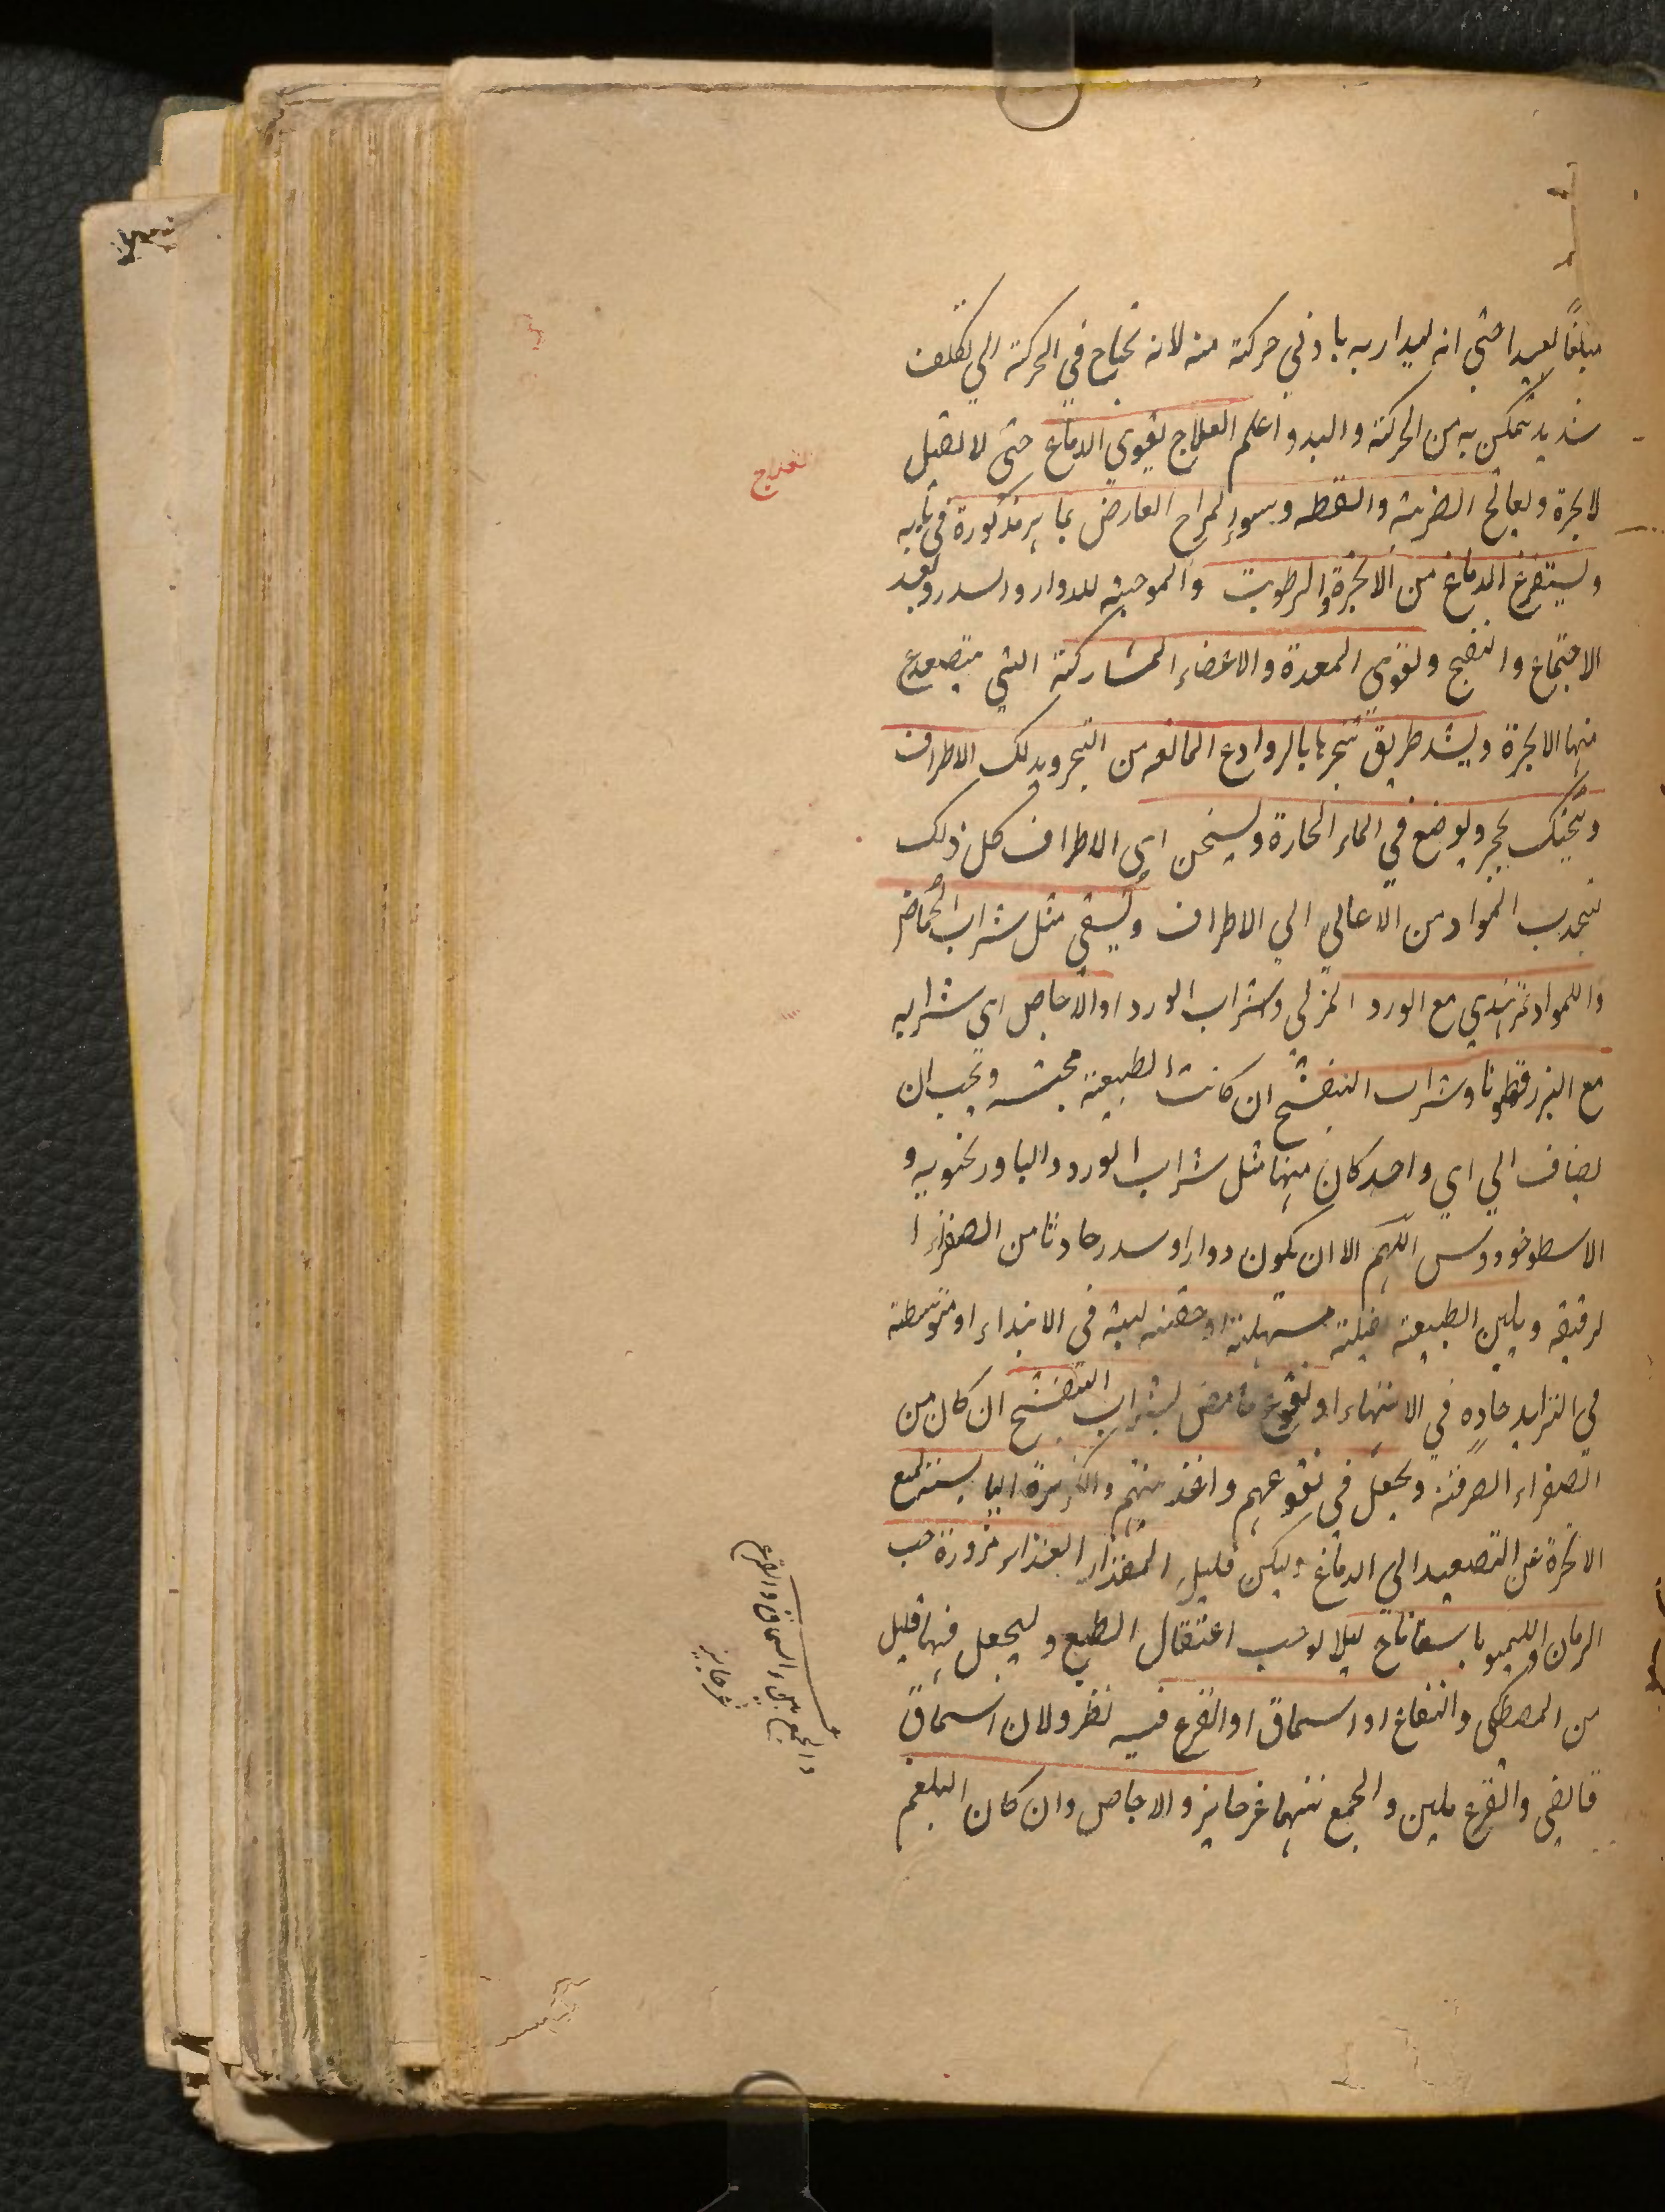 مبلغًا بعيدا حتى انه ليدار به بادني حركته منه لانه يحتاج في الحركته الي تكلف
شديد يتمكن به من الحركته والبد واعلم العلاج يقوي الدماغ حتى لا تقبل
العلاج
لابخرة ويعالج الضربته والسقطه وسوء المزاج العارض بما هو مذكورة في بابه
ويستفرغ الدماغ من الابخرة والرطوبت والموجبته للدوار والسدر وبعد
الاجتماع والنضج ويقوي المعدة والاعضاء المشاركته التي يتصعد
منها الابخرة ويشد طريق تبخرها بالروادع المانعه من التبخر ويدلك الاطراف
ويحك بحجر ويوضع في الماء الحارة ويسخن اي الاطراف كل ذلك
ينجذب المواد من الاعالي الي الاطراف ويسقى مثل شراب الحماض
واللمواد تمرهندي مع الورد المزلى وشراب الورد او الاجاص اي شرابه
مع البزرقطونا وشراب البنفسج ان كانت الطبيعة محتبسه ويجب ان
يضاف الي اي واحد كان منها مثل شراب الورد والبادرنجبويه و
الاسطوخودوس اللهم الا ان يكون دوارا وسدر حادثا من الصفراء ا
لرقيقه ويلين الطبيعته بفيلته مسهلته او حقنه لينه في الابتداء او متوسطته
في التزايد حاده في الانتهاء او نقوع حامض بشراب البنفسج ان كان من
الصفراء الصرفته ويجعل في نقوعهم واغذيتهم والكزبرة اليابسته لمنع
الابخرة عن التصعيد الي الدماغ وليكن قليل المقدار الغذاء مزورة حب
الرمان والليمو باسفاناخ ليلا يوجب اعتقال الطبع وليجعل فيها قليل
من المصطكى والتفاح او السماق او القرع فيه نظر ولان السماق
قابض والقرع ملين والجمع بينهما غير جايز والاجاص وان كان البلغم
والجمع بين السماق والقرع
غير جايز